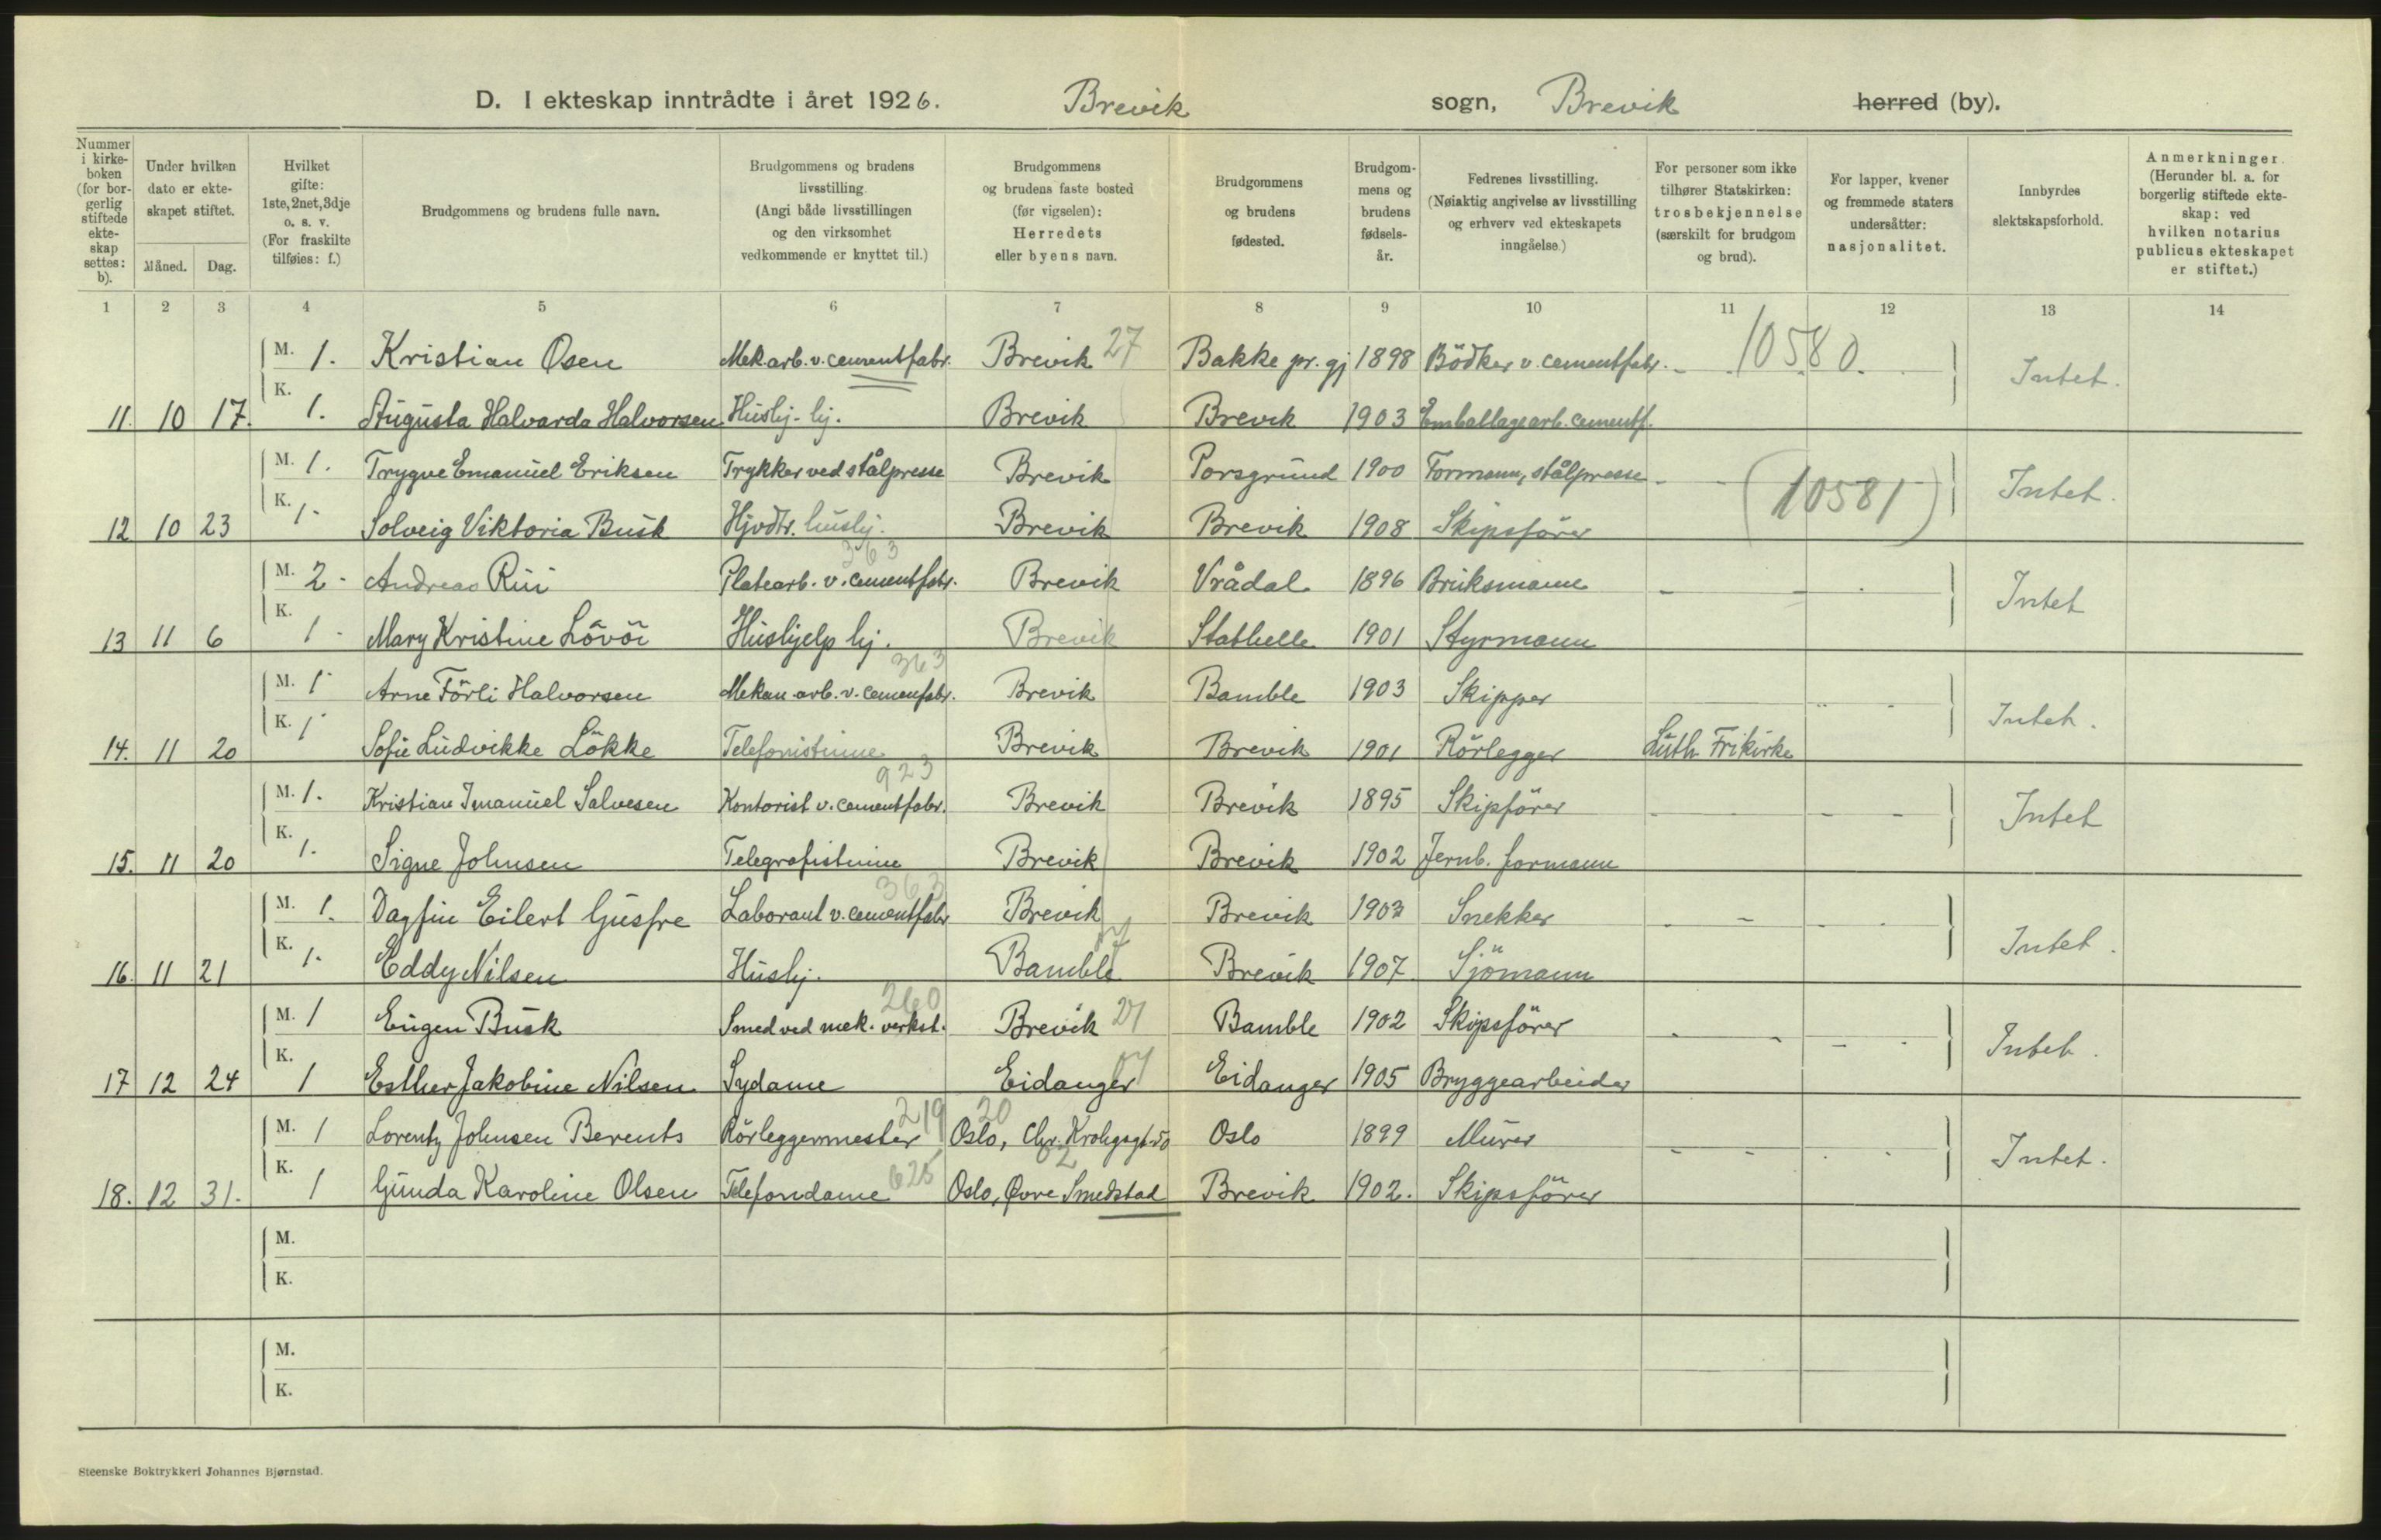 D. I ekteskap inntrådte i året 1926. Brevik sogn, Brevik herred (by).
Nummer i kirkeboken (for borgerlig stiftede ekteskap settes: b).
Under hvilken dato er ekteskapet stiftet.
Måned. Dag.
Hvilket gifte: 1ste, 2net, 3dje o. s. v. (For fraskilte tilføies: f.)
Brudgommens og brudens fulle navn.
Brudgommens og brudens livsstilling. (Angi både livsstillingen og den virksomhet vedkommende er knyttet til.)
Brudgommens og brudens faste bosted (før vigselen): Herredets eller byens navn.
Brudgommens og brudens fødested.
Brudgommens og brudens fødselsår.
Fedrenes livsstilling. (Nøiaktig angivelse av livsstilling og erhverv ved ekteskapets inngåelse.)
For personer som ikke tilhører Statskirken: trosbekjennelse (særskilt for brudgom og brud).
For lapper, kvener og fremmede staters undersåtter: nasjonalitet.
Innbyrdes slektskapsforhold.
Anmerkninger. (Herunder bl. a. for borgerlig stiftede ekteskap: ved hvilken notarius publicus ekteskapet er stiftet.)
1 2 3 4 5 6 7 8 9 10 11 12 13 14
M. 1. Kristian Osen Mek.arb. v. cementfabr. Brevik 27 Bakke pr. gj 1898 Bödker v. cementfabr. - 10580 Intet.
11. 10 17. K. 1. Augusta Halvarda Halvorsen Hushj. hj. Brevik Brevik 1903 Emballagearb. cementf.
M. 1. Trygve Emanuel Eriksen Trykker ved stålpresse Brevik Porsgrund 1900 Formann, stålpresse - - (10581) Intet.
12 10 23 K. 1. Solveig Viktoria Busk Hjvdtr. hushj. Brevik Brevik 1908 Skipsförer
363
M. 2. Andreas Rui Platearb. v. cementfabr. Brevik Vrådal 1896 Bruksmann - - - Intet
13 11 6 K. 1. Mary Kristine Lövöi Hushjelp hj. Brevik Stathelle 1901 Styrmann
363
M. 1 Arne Förli Halvorsen Mekan. arb. v. cemenfabr. Brevik Bamble 1903 Skipper Intet.
14. 11 20 K. 1 Sofie Ludvikke Lökke Telefonistinne Brevik Brevik 1901 Rörlegger Luth. Frikirke
923
M. 1. Kristian Imanuel Salvesen Kontorist v. cementfabr. Brevik Brevik 1895 Skipförer - - - Intet
15. 11 20 K. 1. Signe Johnsen Telegrafistinne Brevik Brevik 1902 Jernb. formann
363
M. 1. Dagfin Eilert Gusfre Laborant v. cementfabr Brevik Brevik 1903 Snekker - - - Intet.
16. 11 21 K. 1. Eddy Nilsen Hushj. Bamble 07 Brevik 1907 Sjömann
260
M. 1 Eugen Busk Smed ved mek. verkst. Brevik 27 Bamble 1902 Skipsförer - - - - Intet.
17 12 24 K. 1 Esther Jakobine Nilsen Sydame Eidanger 07 Eidanger 1905 Bryggearbeider
219 20
M. 1 Lorentz Johnsen Berents Rörleggermester Oslo, Chr. Krohgsgt. 50 Oslo 1899 Murer - - - - Intet.
18. 12 31. K. 1 Gunda Karoline Olsen Telefondame 625 Oslo, Øvre Smedstad 02 Brevik 1902. Skipsförer
M.
K.
M.
K.
Steenske Boktrykkeri Johannes Bjørnstad.